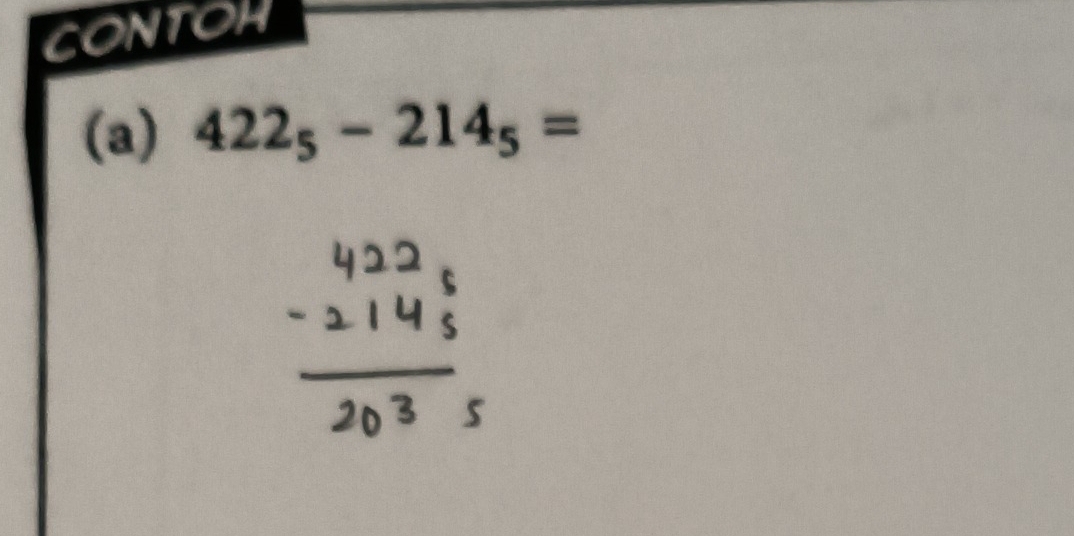 CONTOH
(a) 422₅ − 214₅ =
422 ₅
- 214 ₅
203 ₅